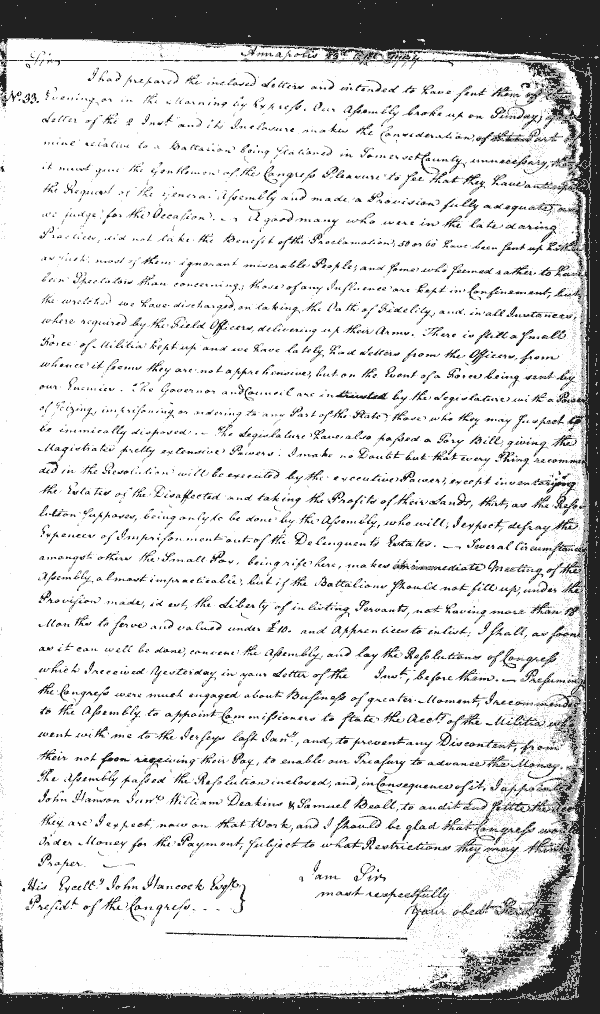 Sir Annapolis 23d April 1777
I had prepared the inclosed Letters and intended to have sent them
No. 33. Evening, or in the Morning by Express. Our Assembly broke up on Sunday,
Letter of the 2 Inst and its Inclosure makes the Consideration of Part
mine relative to a Battalion being stationed in Somerset County unnecessary,
it must give the Gentlemen of the Congress Pleasure to see that they have
the Request of the General Assembly and made a Provision fully adequate, as
we judge for the Occasion. — A good many who were in the late daring
Practices, did not take the Benefit of the Proclamation; 50 or 60 have been sent up hither
most of them ignorant miserable People, and some who seemed rather to have
been Spectators than concerning; those of any Influence are kept in Confinement, but
the wretched we have discharged, on taking the Oath of Fidelity, and, in all Instances,
where required by the Field Officers, delivering up their Arms. There is still a small
Force of Militia kept up and we have lately had Letters from the Officers, from
whence it seems they are not apprehensive, but on the Event of a Force being sent by
our Enemies. The Governor and Council are intrusted by the Legislature with a Power
of seizing, imprisoning or ordering to any Part of the State those who they may suspect to
be inimically disposed. — The Legislature have also passed a Tory Bill, giving the
Magistrates pretty extensive Powers. I make no Doubt but that every Thing recommen
ded in the Resolution will be executed by the executive Power, except inventorying
the Estates of the Disaffected and taking the Profits of their Lands, this, as the Reso
lution supposes, being only to be done by the Assembly, who will, I expect, defray the
Expences of Imprisonment out of the Delinquents Estates. — Several Circumstances
amongst others the Small Pox, being rife here, makes an immediate Meeting of the
Assembly, almost impracticable, but if the Battalions should not fill up, under the
Provision made, id est, the Liberty of inlisting Servants, not having more than 18
Months to serve and valued under £10. and Apprentices to enlist, I shall, as soon
as it can well be done, convene the Assembly, and lay the Resolutions of Congress
which I received Yesterday, in your Letter of the Inst, before them. — Presuming
the Congress were much engaged about Business of greater Moment, I recommended
to the Assembly to appoint Commissioners to state the Accts of the Militia who
went with me to the Jerseys last Jany, and, to prevent any Discontent, from
their not soon receiving their Pay, to enable our Treasury to advance the Money.
The Assembly passed the Resolution inclosed, and, in Consequence of it, I appointed
John Hanson Junr William Deakins & Samuel Beall, to audit and settle the
they are I expect, now on that Work, and I should be glad that Congress would
order Money for the Payment, subject to what Restrictions they may think
Proper. —
I am Sir
His Excelly John Hancock Esqr
most respectfully
Presidt of the Congress. . . .
Your obedt Servt